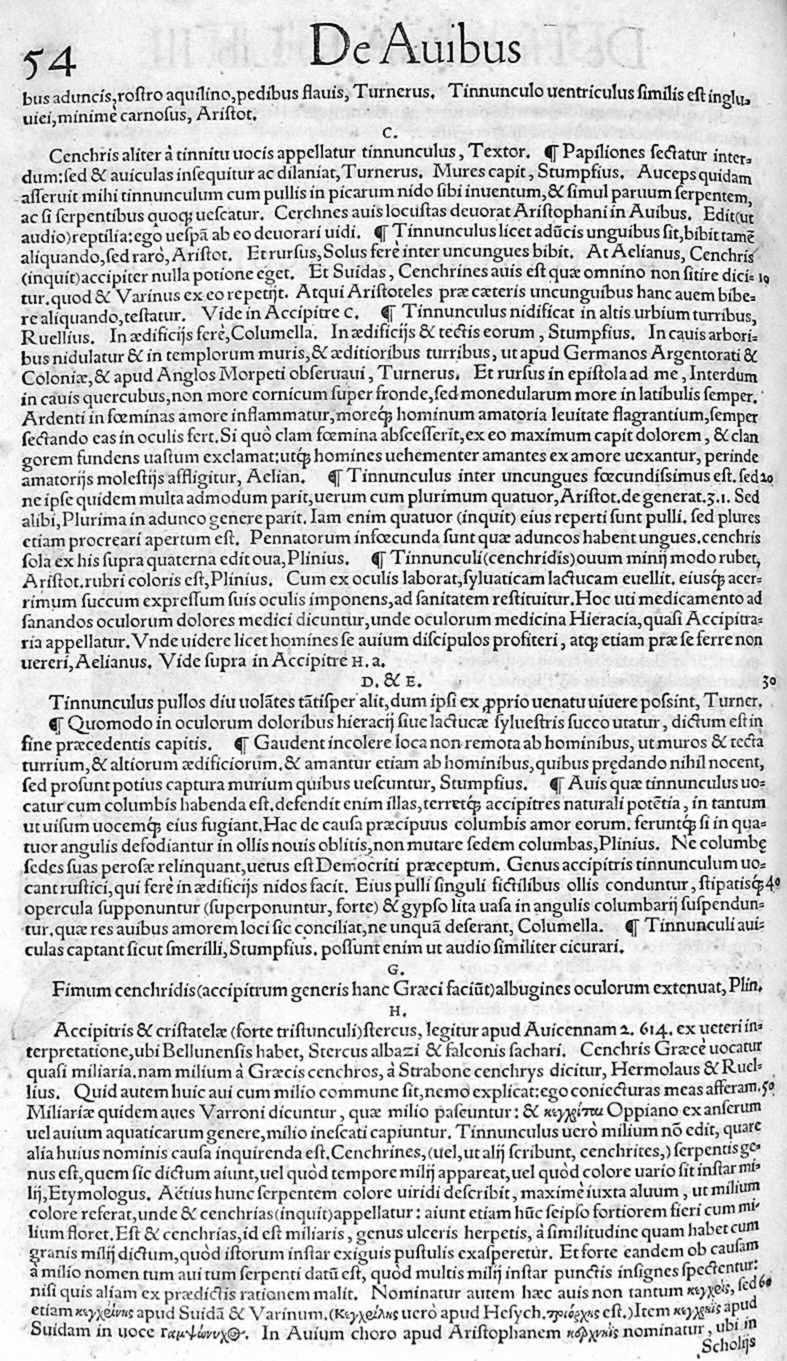 54 De Avibus
bus aduncis, rostro aquilino, pedibus flauis, Turnerus. Tinnunculo uentriculus similis est inglu⸗
uiei, minimè carnosus, Aristot.
C.
Cenchris aliter à tinnitu uocis appellatur tinnunculus, Textor. ¶ Papiliones sectatur inter⸗
dum: sed & auiculas insequitur ac dilaniat, Turnerus. Mures capit, Stumpfius. Auceps quidam
asseruit mihi tinnunculum cum pullis in picarum nido sibi inuentum, & simul paruum serpentem,
ac si serpentibus quoqꝫ uescatur. Cerchnes auis locustas deuorat Aristophani in Auibus. Edit (ut
audio) reptilia: ego uespā ab eo deuorari uidi. ¶ Tinnunculus licet adūcis unguibus sit, bibit tamē
aliquando, sed rarò, Aristot. Et rursus, Solus ferè inter uncungues bibit. At Aelianus, Cenchris
(inquit) accipiter nulla potione eget. Et Suidas, Cenchrines auis est quæ omnino non sitire dici⸗ 10
tur. quod & Varinus ex eo repetijt. Atqui Aristoteles præ cæteris uncunguibus hanc auem bibe⸗
re aliquando, testatur. Vide in Accipitre C. ¶ Tinnunculus nidificat in altis urbium turribus,
Ruellius. In ædificijs ferè, Columella. In ædificijs & tectis eorum, Stumpfius. In cauis arbori⸗
bus nidulatur & in templorum muris, & æditioribus turribus, ut apud Germanos Argentorati &
Coloniæ, & apud Anglos Morpeti obseruaui, Turnerus. Et rursus in epistola ad me, Interdum
in cauis quercubus, non more cornicum super fronde, sed monedularum more in latibulis semper.
Ardenti in fœminas amore inflammatur, moreqꝫ hominum amatoria leuitate flagrantium, semper
sectando eas in oculis fert. Si quò clam fœmina abscesserit, ex eo maximum capit dolorem, & clan
gorem fundens uastum exclamat: utqꝫ homines uehementer amantes ex amore uexantur, perinde
amatorijs molestijs affligitur, Aelian. ¶ Tinnunculus inter uncungues fœcundissimus est. sed 20
ne ipse quidem multa admodum parit, uerum cum plurimum quatuor, Aristot. de generat. 3. 1. Sed
alibi, Plurima in adunco genere parit. Iam enim quatuor (inquit) eius reperti sunt pulli. sed plures
etiam procreari apertum est. Pennatorum infœcunda sunt quæ aduncos habent ungues. cenchris
sola ex his supra quaterna edit oua, Plinius. ¶ Tinnunculi (cenchridis) ouum minij modo rubet,
Aristot. rubri coloris est, Plinius. Cum ex oculis laborat, syluaticam lactucam euellit. eiusqꝫ acer⸗
rimum succum expressum suis oculis imponens, ad sanitatem restituitur. Hoc uti medicamento ad
sanandos oculorum dolores medici dicuntur, unde oculorum medicina Hieracia, quasi Accipitra⸗
ria appellatur. Vnde uidere licet homines se auium discipulos profiteri, atqꝫ etiam præ se ferre non
uereri, Aelianus. Vide supra in Accipitre H. a.
D. & E. 30
Tinnunculus pullos diu uolātes tātisper alit, dum ipsi ex ꝓprio uenatu uiuere possint, Turner.
¶ Quomodo in oculorum doloribus hieracij siue lactucæ syluestris succo utatur, dictum est in
fine præcedentis capitis. ¶ Gaudent incolere loca non remota ab hominibus, ut muros & tecta
turrium, & altiorum ædificiorum. & amantur etiam ab hominibus, quibus prędando nihil nocent,
sed prosunt potius captura murium quibus uescuntur, Stumpfius. ¶ Auis quæ tinnunculus uo⸗
catur cum columbis habenda est. defendit enim illas, terretqꝫ accipitres naturali potētia, in tantum
ut uisum uocemqꝫ eius fugiant. Hac de causa præcipuus columbis amor eorum. feruntqꝫ si in qua⸗
tuor angulis defodiantur in ollis nouis oblitis, non mutare sedem columbas, Plinius. Ne columbę
sedes suas perosæ relinquant, uetus est Democriti præceptum. Genus accipitris tinnunculum uo⸗
cant rustici, qui ferè in ædificijs nidos facit. Eius pulli singuli fictilibus ollis conduntur, stipatisqꝫ 40
opercula supponuntur (superponuntur, forte) & gypso lita uasa in angulis columbarij suspendun⸗
tur. quæ res auibus amorem loci sic conciliat, ne unquā deserant, Columella. ¶ Tinnunculi aui⸗
culas captant sicut smerilli, Stumpfius. possunt enim ut audio similiter cicurari.
G.
Fimum cenchridis (accipitrum generis hanc Græci faciūt) albugines oculorum extenuat, Plin.
H.
Accipitris & cristatelæ (forte tristunculi) stercus, legitur apud Auicennam 2. 614. ex ueteri in⸗
terpretatione, ubi Bellunensis habet, Stercus albazi & falconis sachari. Cenchris Græcè uocatur
quasi miliaria. nam milium à Græcis cenchros, à Strabone cenchrys dicitur, Hermolaus & Ruel⸗
lius. Quid autem huic aui cum milio commune sit, nemo explicat: ego coniecturas meas afferam. 50
Miliariæ quidem aues Varroni dicuntur, quæ milio pascuntur: & κεγχρῖται Oppiano ex anserum
uel auium aquaticarum genere, milio inescati capiuntur. Tinnunculus uerò milium nō edit, quare
alia huius nominis causa inquirenda est. Cenchrines, (uel, ut alij scribunt, cenchrites,) serpentis ge⸗
nus est, quem sic dictum aiunt, uel quòd tempore milij appareat, uel quòd colore uario sit instar mi⸗
lij, Etymologus. Aëtius hunc serpentem colore uiridi describit, maximè iuxta aluum, ut milium
colore referat, unde & cenchrias (inquit) appellatur: aiunt etiam hūc seipso fortiorem fieri cum mi⸗
lium floret. Est & cenchrias, id est miliaris, genus ulceris herpetis, à similitudine quam habet cum
granis milij dictum, quòd istorum instar exiguis pustulis exasperetur. Et forte eandem ob causam
à milio nomen tum aui tum serpenti datū est, quòd multis milij instar punctis insignes spectentur:
nisi quis aliam ex prædictis rationem malit. Nominatur autem hæc auis non tantum κεγχρὶς, sed 60
etiam κεγχρίνης apud Suidā & Varinum. (Κεγχρίνης uerò apud Hesych. τριόρχης est.) Item κεγχρηὶς apud
Suidam in uoce γαμψώνυχος. In Auium choro apud Aristophanem κερχνηὶς nominatur, ubi in
Scholijs